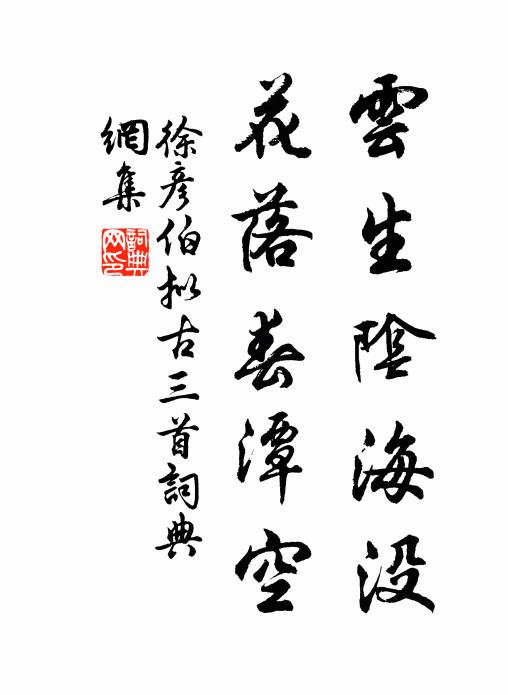 雲生陰海没
花落春潭空
徐彦伯拟古三首詞典
網集
詞典網印